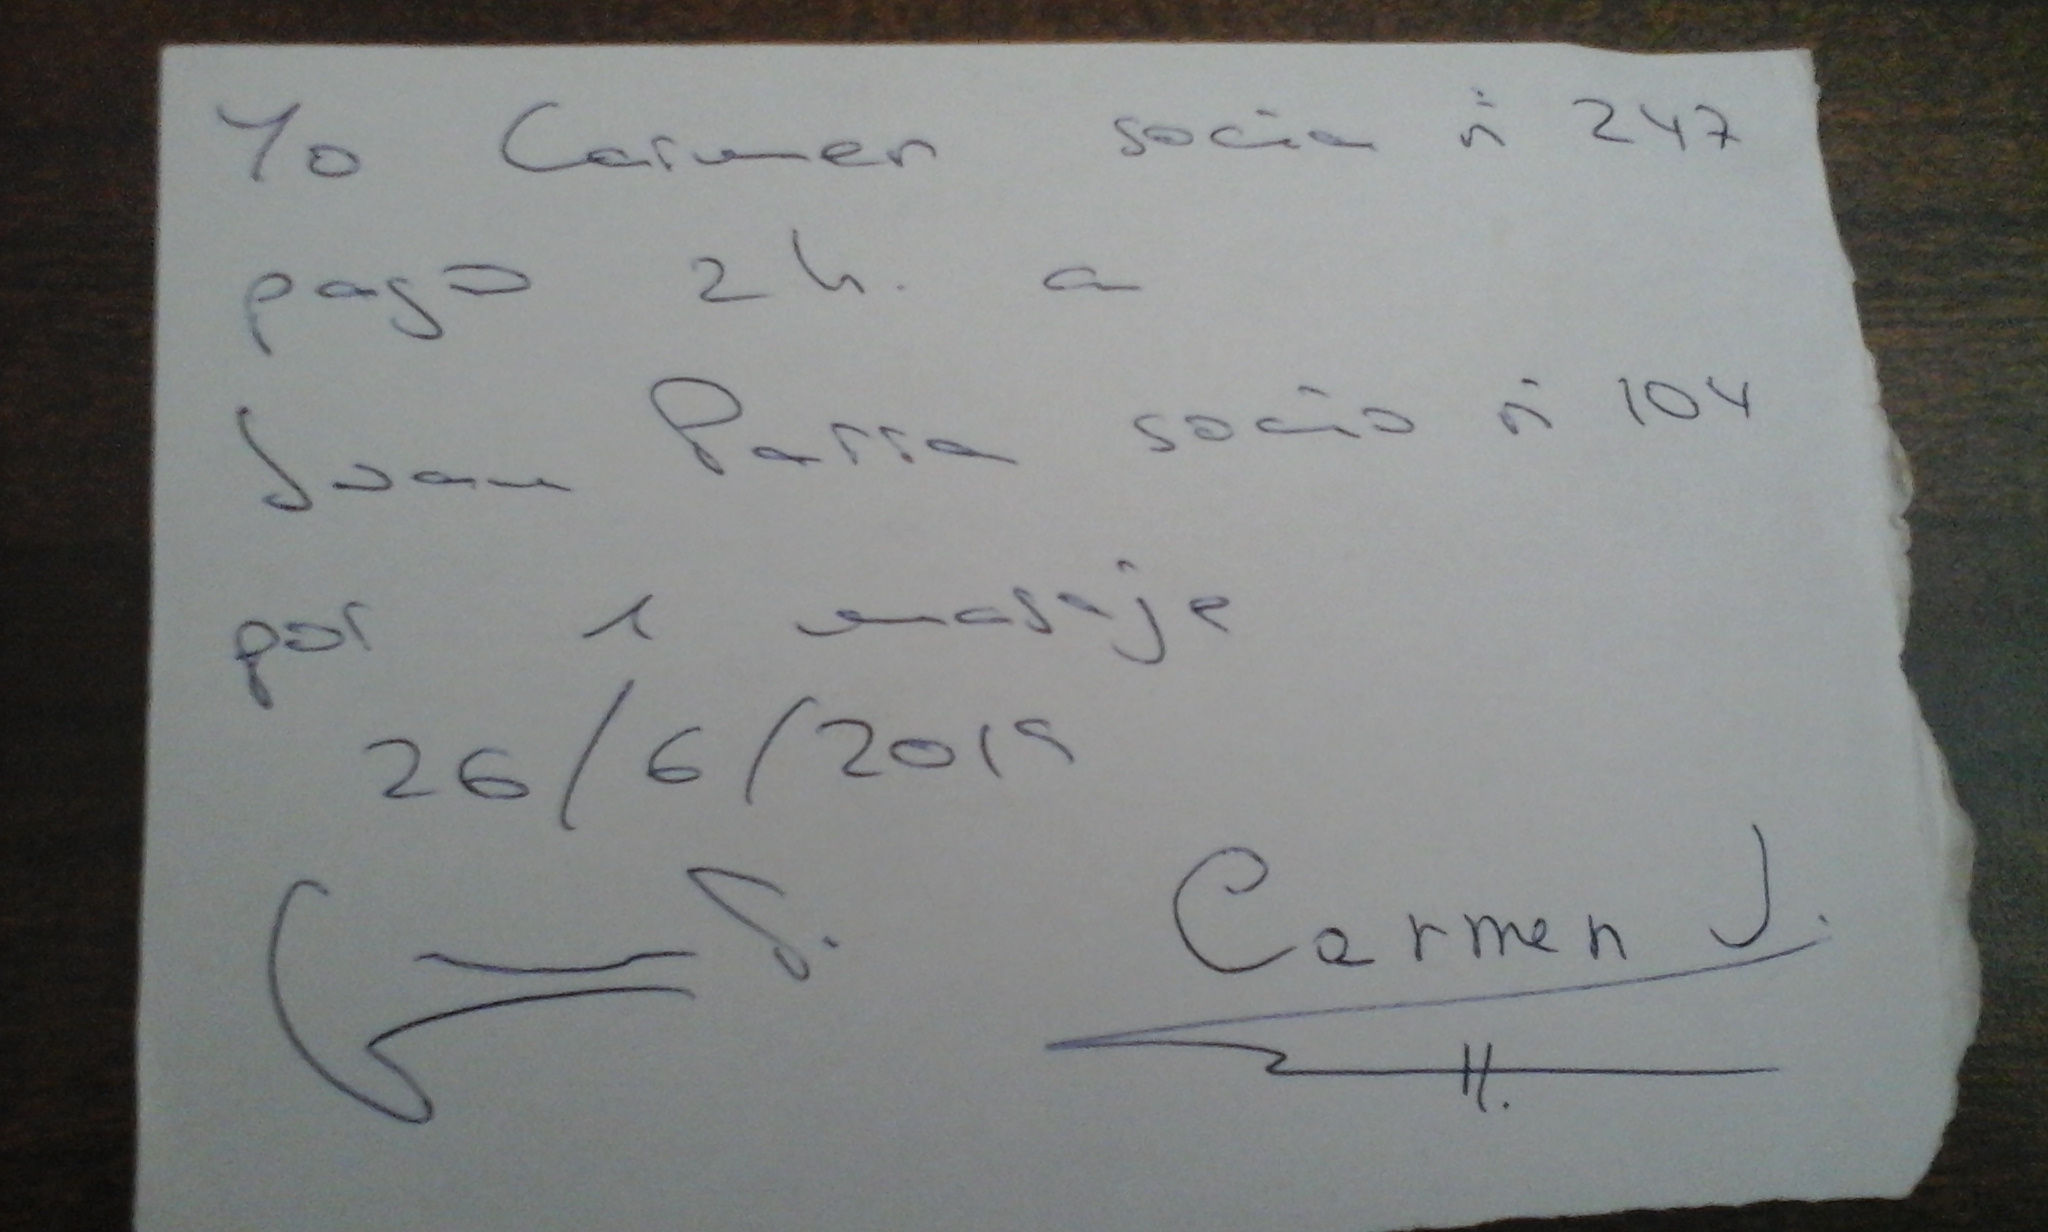 Yo Carmen socia nº 247
pago 2 h. a
Juan Parra socio nº 104
por 1 masaje
26/6/2019
Carmen J.